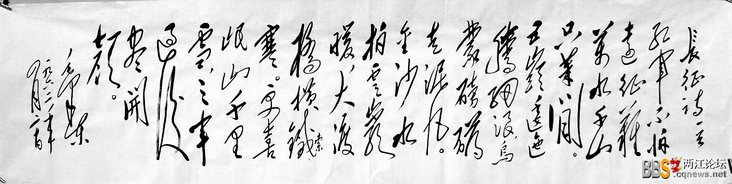 長征詩一首
紅軍不怕
遠征難
萬水千山
只等閒。
五嶺逶迤
騰細浪烏
蒙磅礴
走泥丸。
金沙水
拍雲崖
暖。大渡
橋橫鐵索
寒。更喜
岷山千里
雪三軍
過後
盡開
顏。
毛澤東
一九六二年
BBS 两江论坛
cqnews.net